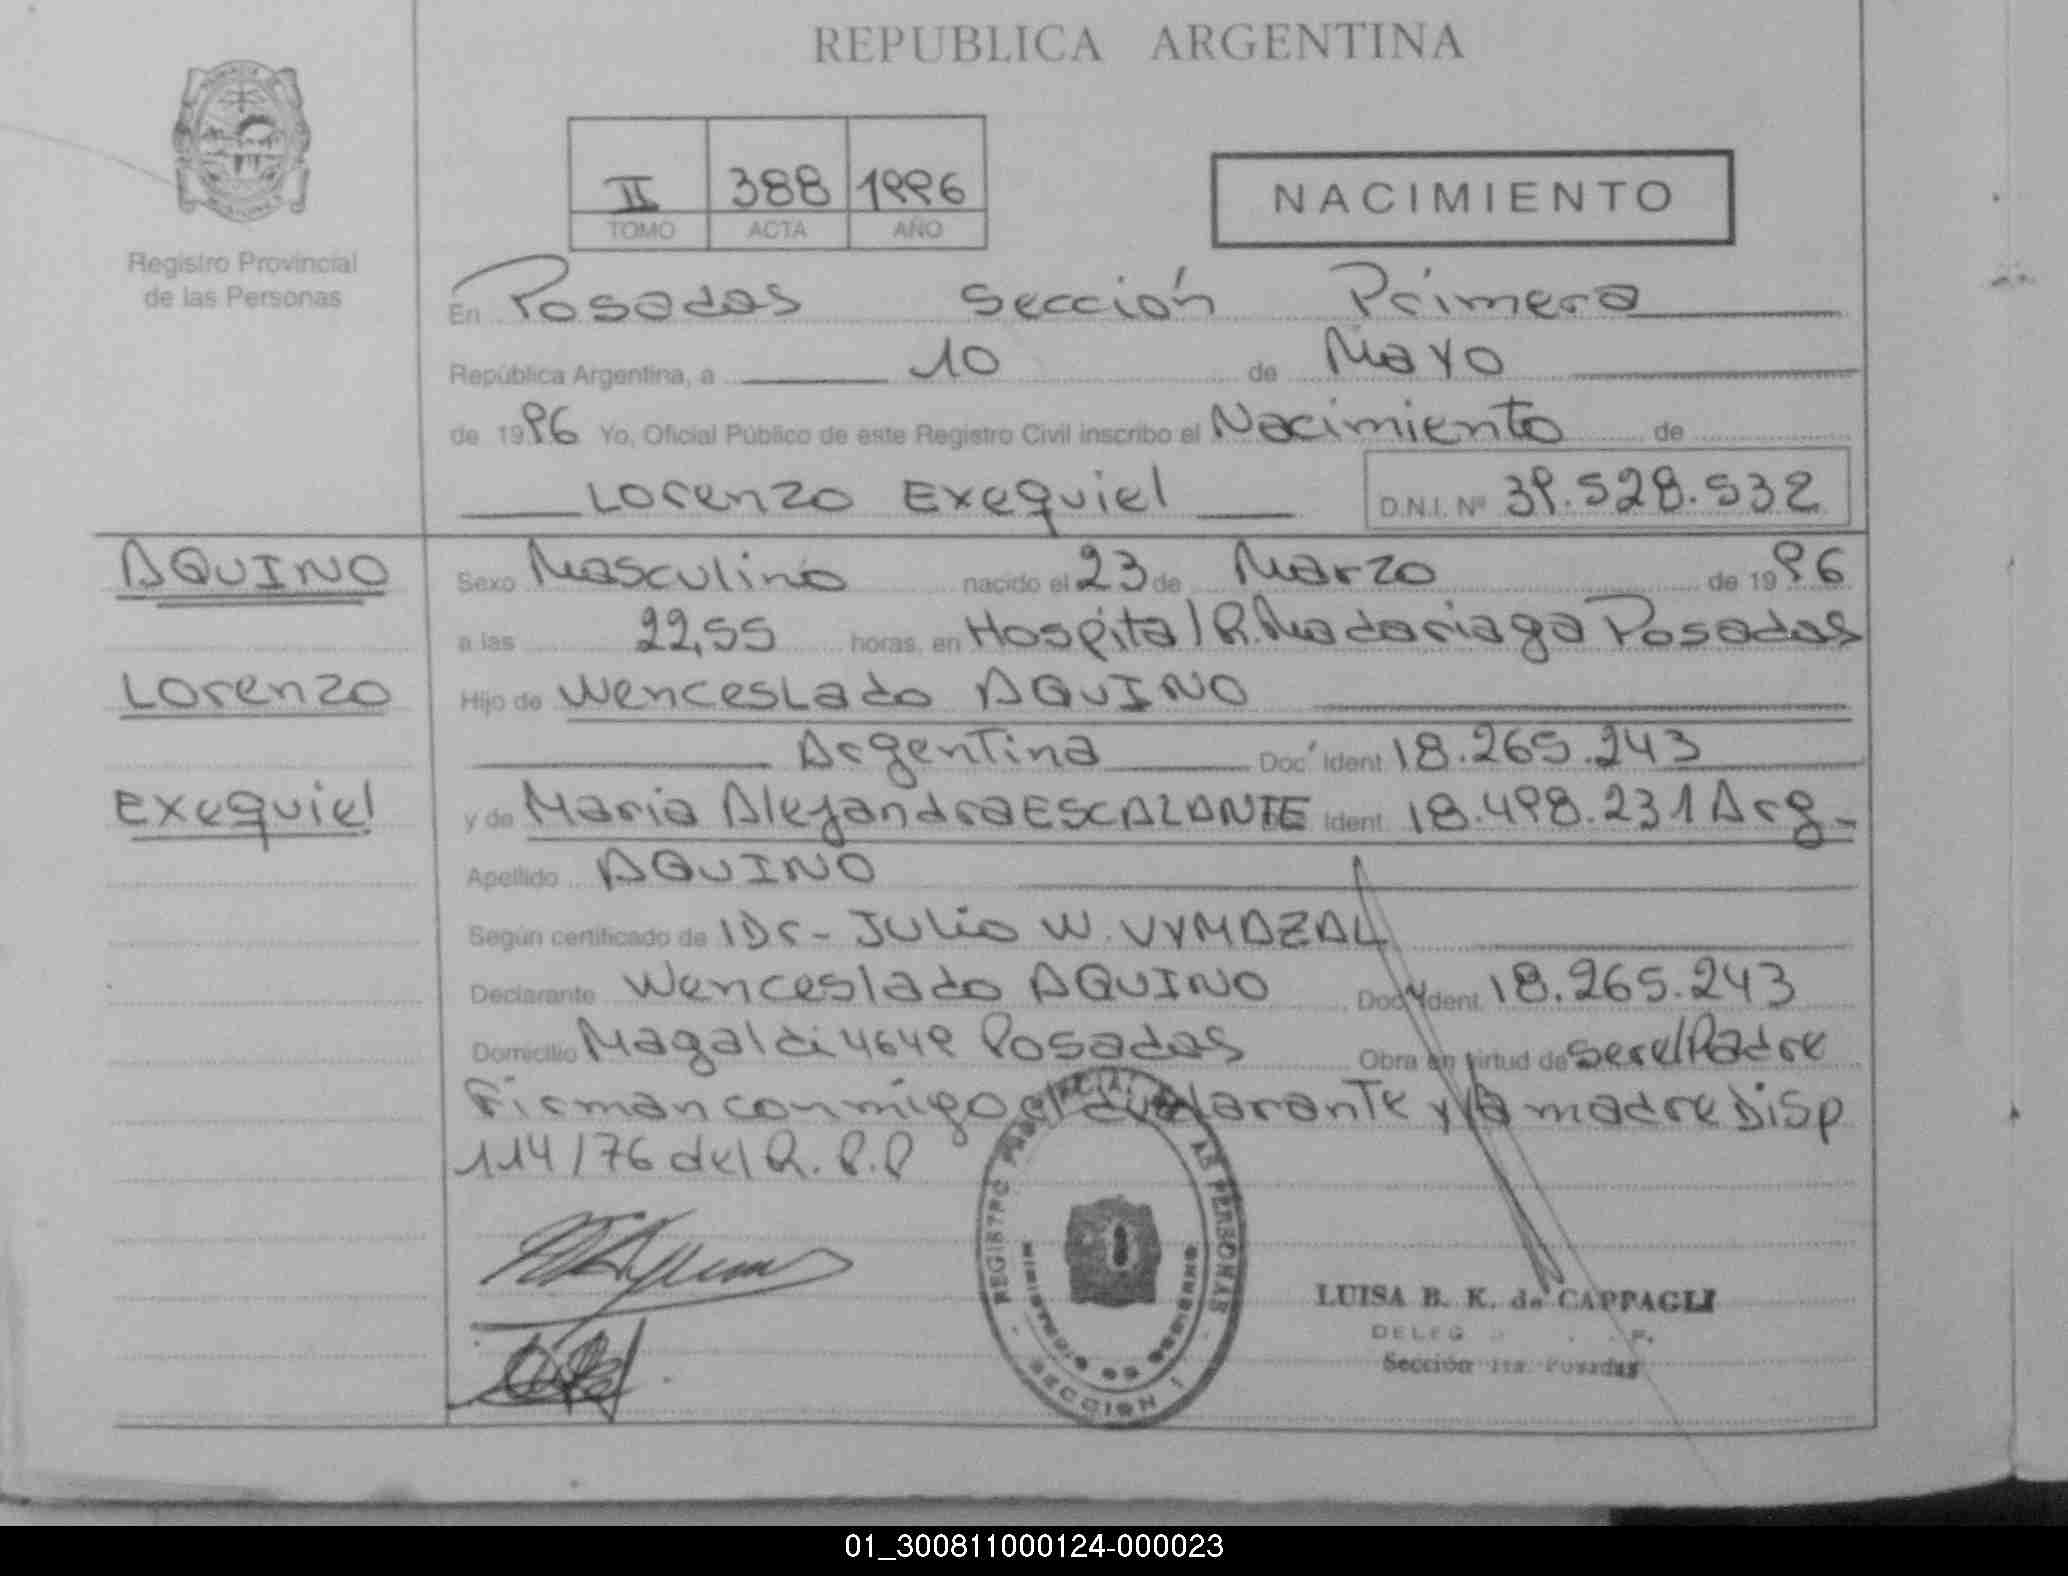 REPUBLICA ARGENTINA
Registro Provincial
de las Personas
II 388 1996
TOMO ACTA AÑO
NACIMIENTO
En Posadas Sección Primera
República Argentina, a 10 de Mayo
de 1996 Yo, Oficial Público de este Registro Civil inscribo el Nacimiento de
Lorenzo Exequiel D.N.I. Nº 39.528.532
AQUINO
Lorenzo
Exequiel
Sexo Masculino nacido el 23 de Marzo de 1996
a las 22,55 horas, en Hospital R. Madariaga Posadas
Hijo de Wenceslado AQUINO
Argentina Doc. Ident. 18.265.243
y de Maria Alejandra ESCALANTE Ident. 18.498.231 Arg-
Apellido AQUINO
Según certificado de Dr- Julio W. VYMAZAL
Declarante Wenceslado AQUINO Doc. Ident. 18.265.243
Domicilio Magaldi 4649 Posadas Obra en virtud de ser el Padre
Firman conmigo el declarante y la madre Disp
114/76 del R.P.P
REGISTRO PROVINCIAL AS PERSONAS
MINISTERIO DE GOBIERNO
SECCION 1
LUISA B. K. de CAPPAGLI
DELEG
Sección 1ra. Posadas
01_300811000124-000023